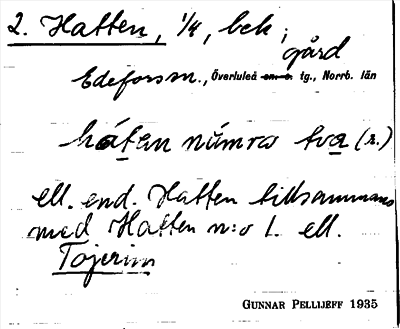 2. Hatten, 1/4, bek.,
gård
Edeforsm., Överluleå tg., Norrb. län
håten númra två (2.)
ell. end. Hatten tillsammans
med Hatten n:o 1. ell.
Tojerim
GUNNAR PELLIJEFF 1935